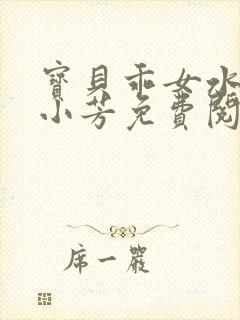 寶貝乖女水
小芳免費閱
席一嚴